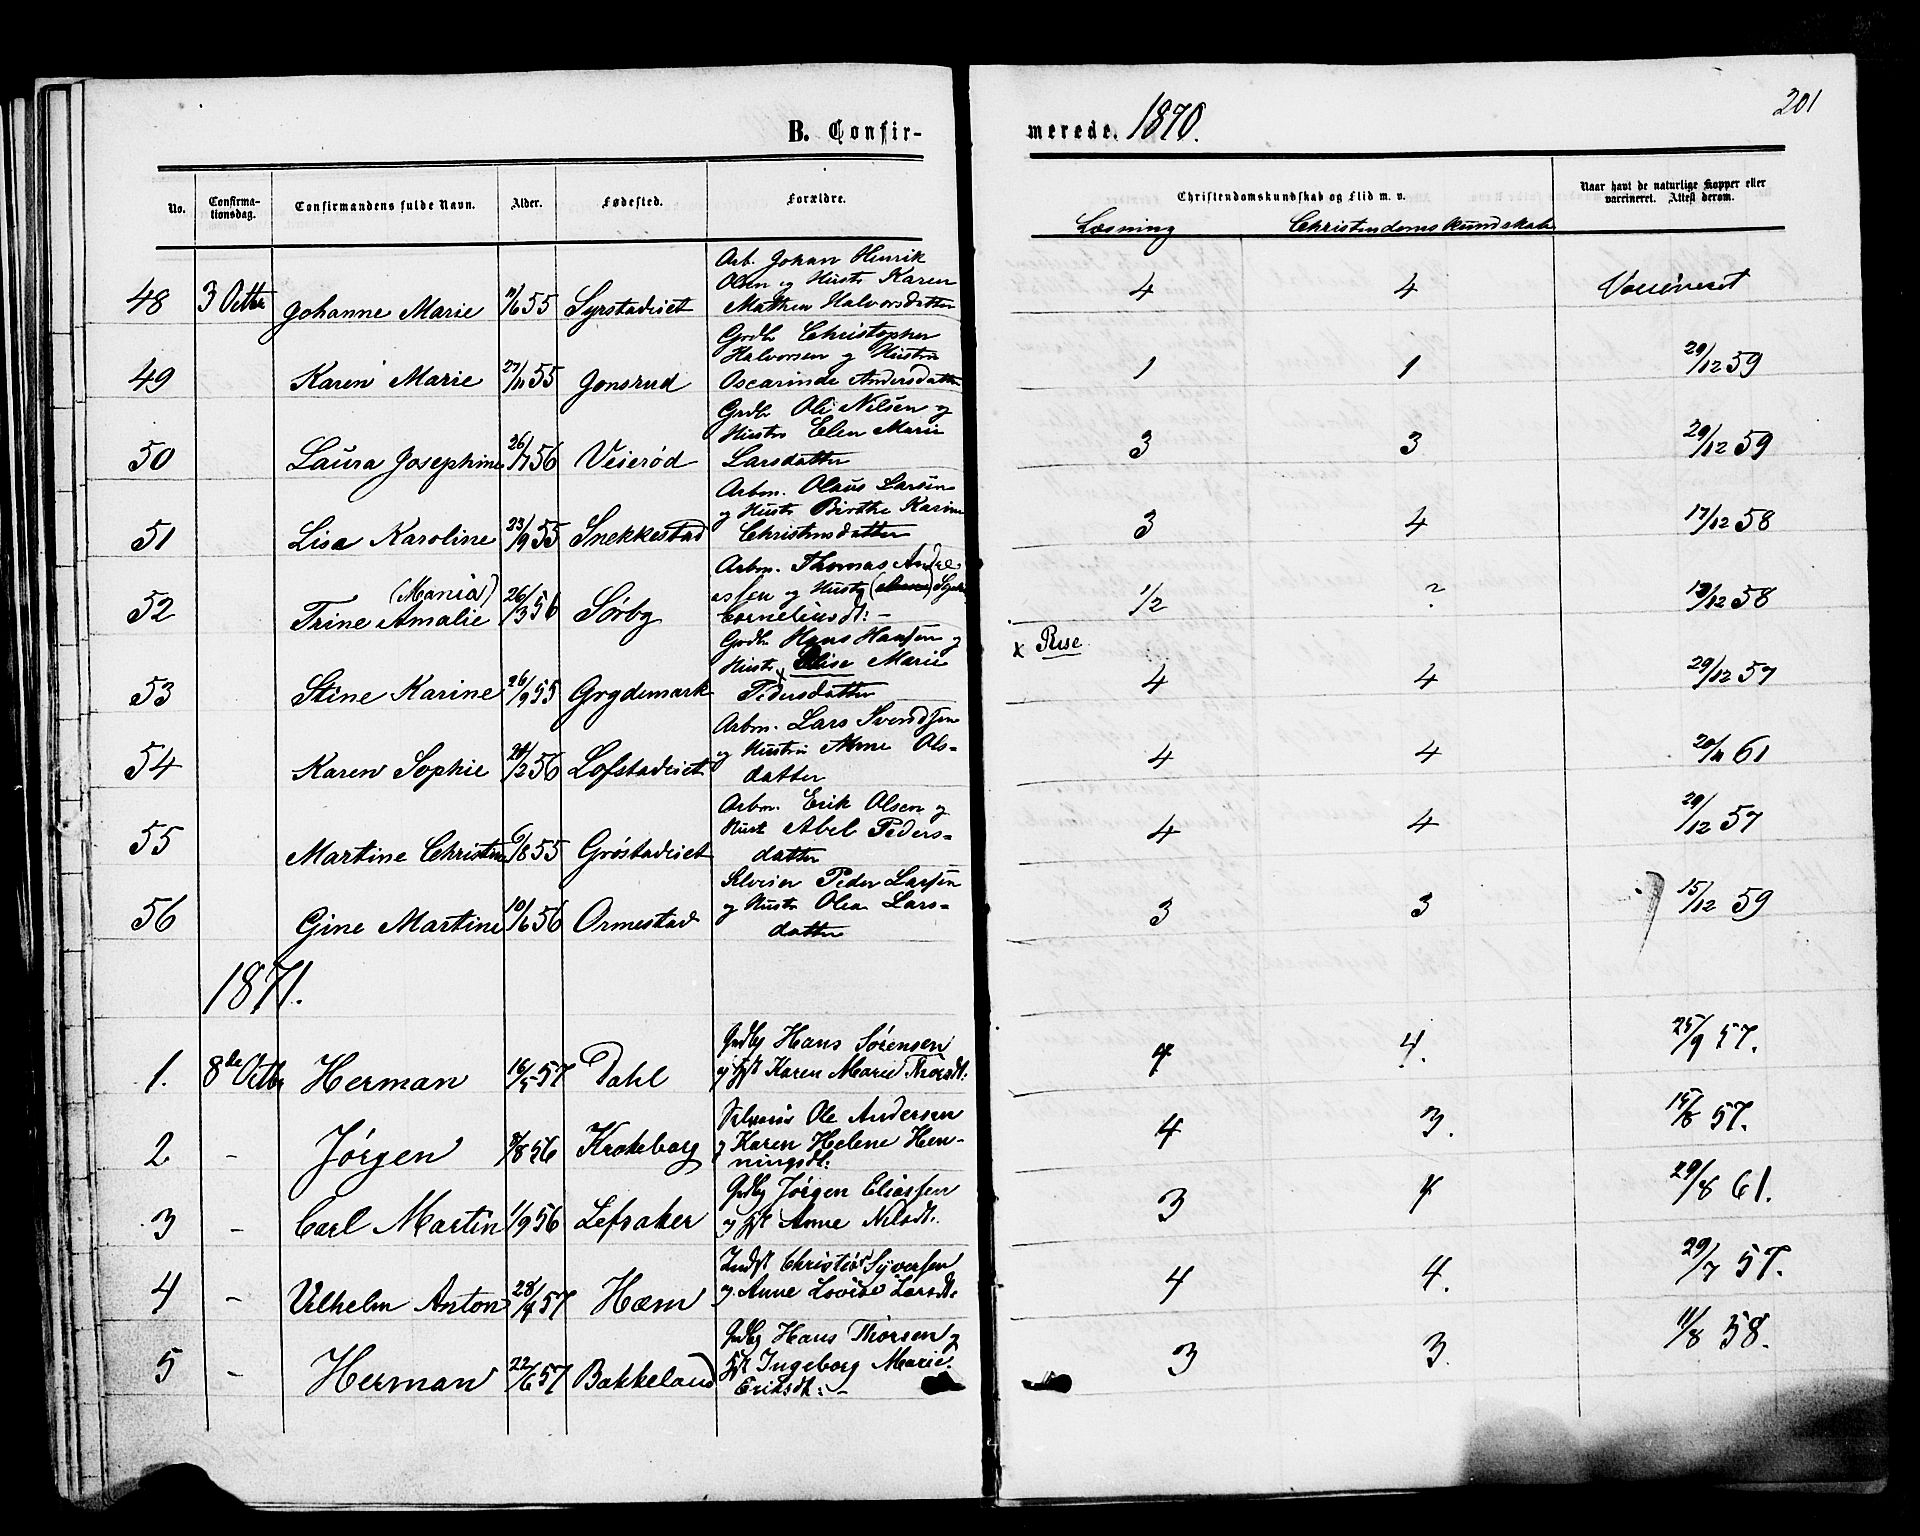 201
B. Confir-
merede. 1870.
No.
Confirma-
tionsdag.
Confirmandens fulde Navn.
Alder.
Fødested.
Forældre.
Christendomskundskab og Flid m. v.
Læsning
Christendomskundskab
Naar havt de naturlige Kopper eller
vaccineret. Attest derom.
Arb. Johan Henrik
Olsen og Hustr Karen
48 3 Octbr Johanne Marie 11/6 55 Syrstadeiet Mathea Halvorsdatter 4 4 Vacineret
Grdbr Christopher
Halvorsen og Hustru
49 Karen Marie 27/11 55 Jonsrud Oscarinde Andersdatter 1 1 29/12 59
Grdb Ole Nilsen og
Hustr Elen Marie
50 Laura Josephine 26/7 56 Veierød Larsdatter 3 3 29/12 59
Arbm. Olaus Larsen
og Hustr Birthe Karine
51 Lise Karoline 23/9 55 Snekkestad Christensdatter 3 4 17/12 58
Arbm. Thomas Andre
(Mania) assen og Hust
52 Trine Amalie 26/3 56 Sørby Corneliusdt:- 1/2 ? 13/12 58
Grdb Hans Hansen og
x Rise
Hustr Elise Marie
x
53 Stine Karine 26/9 55 Grydemark Pedersdatter 4 4 29/12 57
Arbm. Lars Svendsen
og Hustru Anne Ols-
54 Karen Sophie 24/2 56 Lofstadeiet datter 4 4 20/11 61
Arbm. Erik Olsen og
Hust Abel Peders-
55 Martine Christine 6/8 55 Grøstadeiet datter 4 4 29/12 57
Selveier Peder Larsen
og Hustr Olea Lars-
56 Gine Martine 10/6 56 Ormestad datter 3 3 15/12 59
1871.
Grdbg Hans Sørensen
1. 8de Octbr Herman 16/5 57 Dahl og Hst Karen Marie Thorsdt: 4 4. 25/9 57.
Selveier Ole Andersen
2 - Jørgen 8/8 56 Krokeborg og Karen Helene Hen- 4 3. 15/8 57.
ningsdt:
Grdbg Jørgen Eliassen
3 - Carl Martin 1/9 56 Lefsaker og Hst Anne Nilsdt. 3 4 29/8 61.
Indst Christian Syversen
4 - Vilhelm Anton 28/4 57 Hæm og Anne Lovise Larsdt. 4 4. 29/7 57.
Grdbg Hans Thorsen og
5 - Herman 22/6 57 Bakkeland Hst Ingeborg Marie 3 3. 11/8 58.
Eriksdt:-